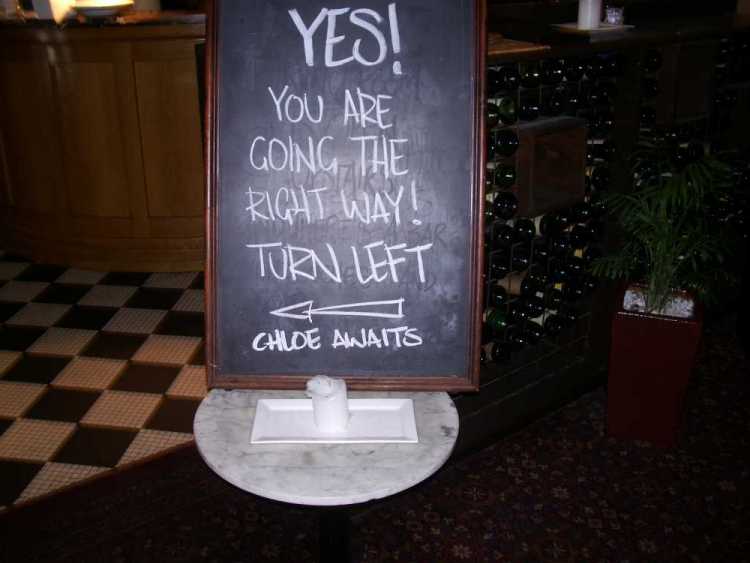 YES!
YOU ARE
GOING THE
RIGHT WAY!
TURN LEFT
CHLOE AWAITS